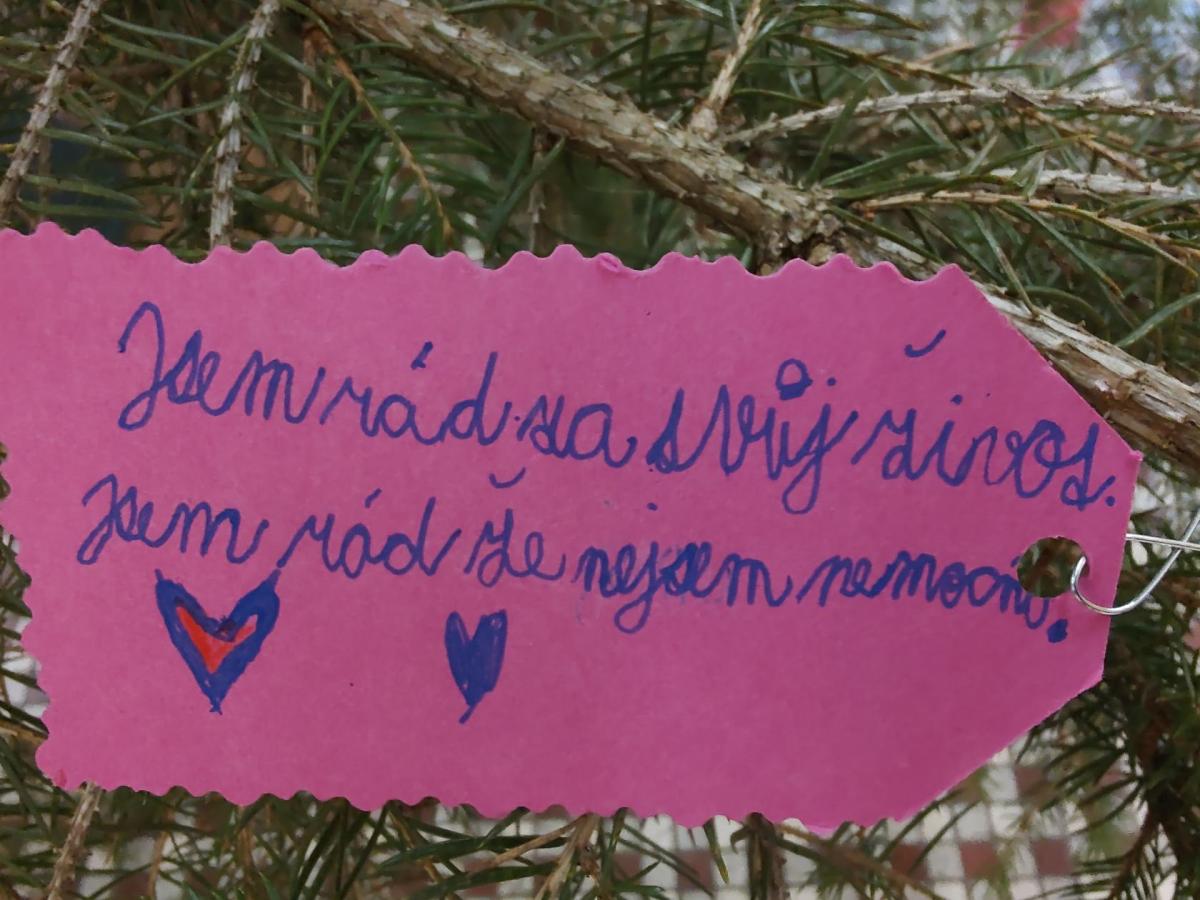 Jsem rád za svůj živos.
Jsem rád že nejsem nemocní.